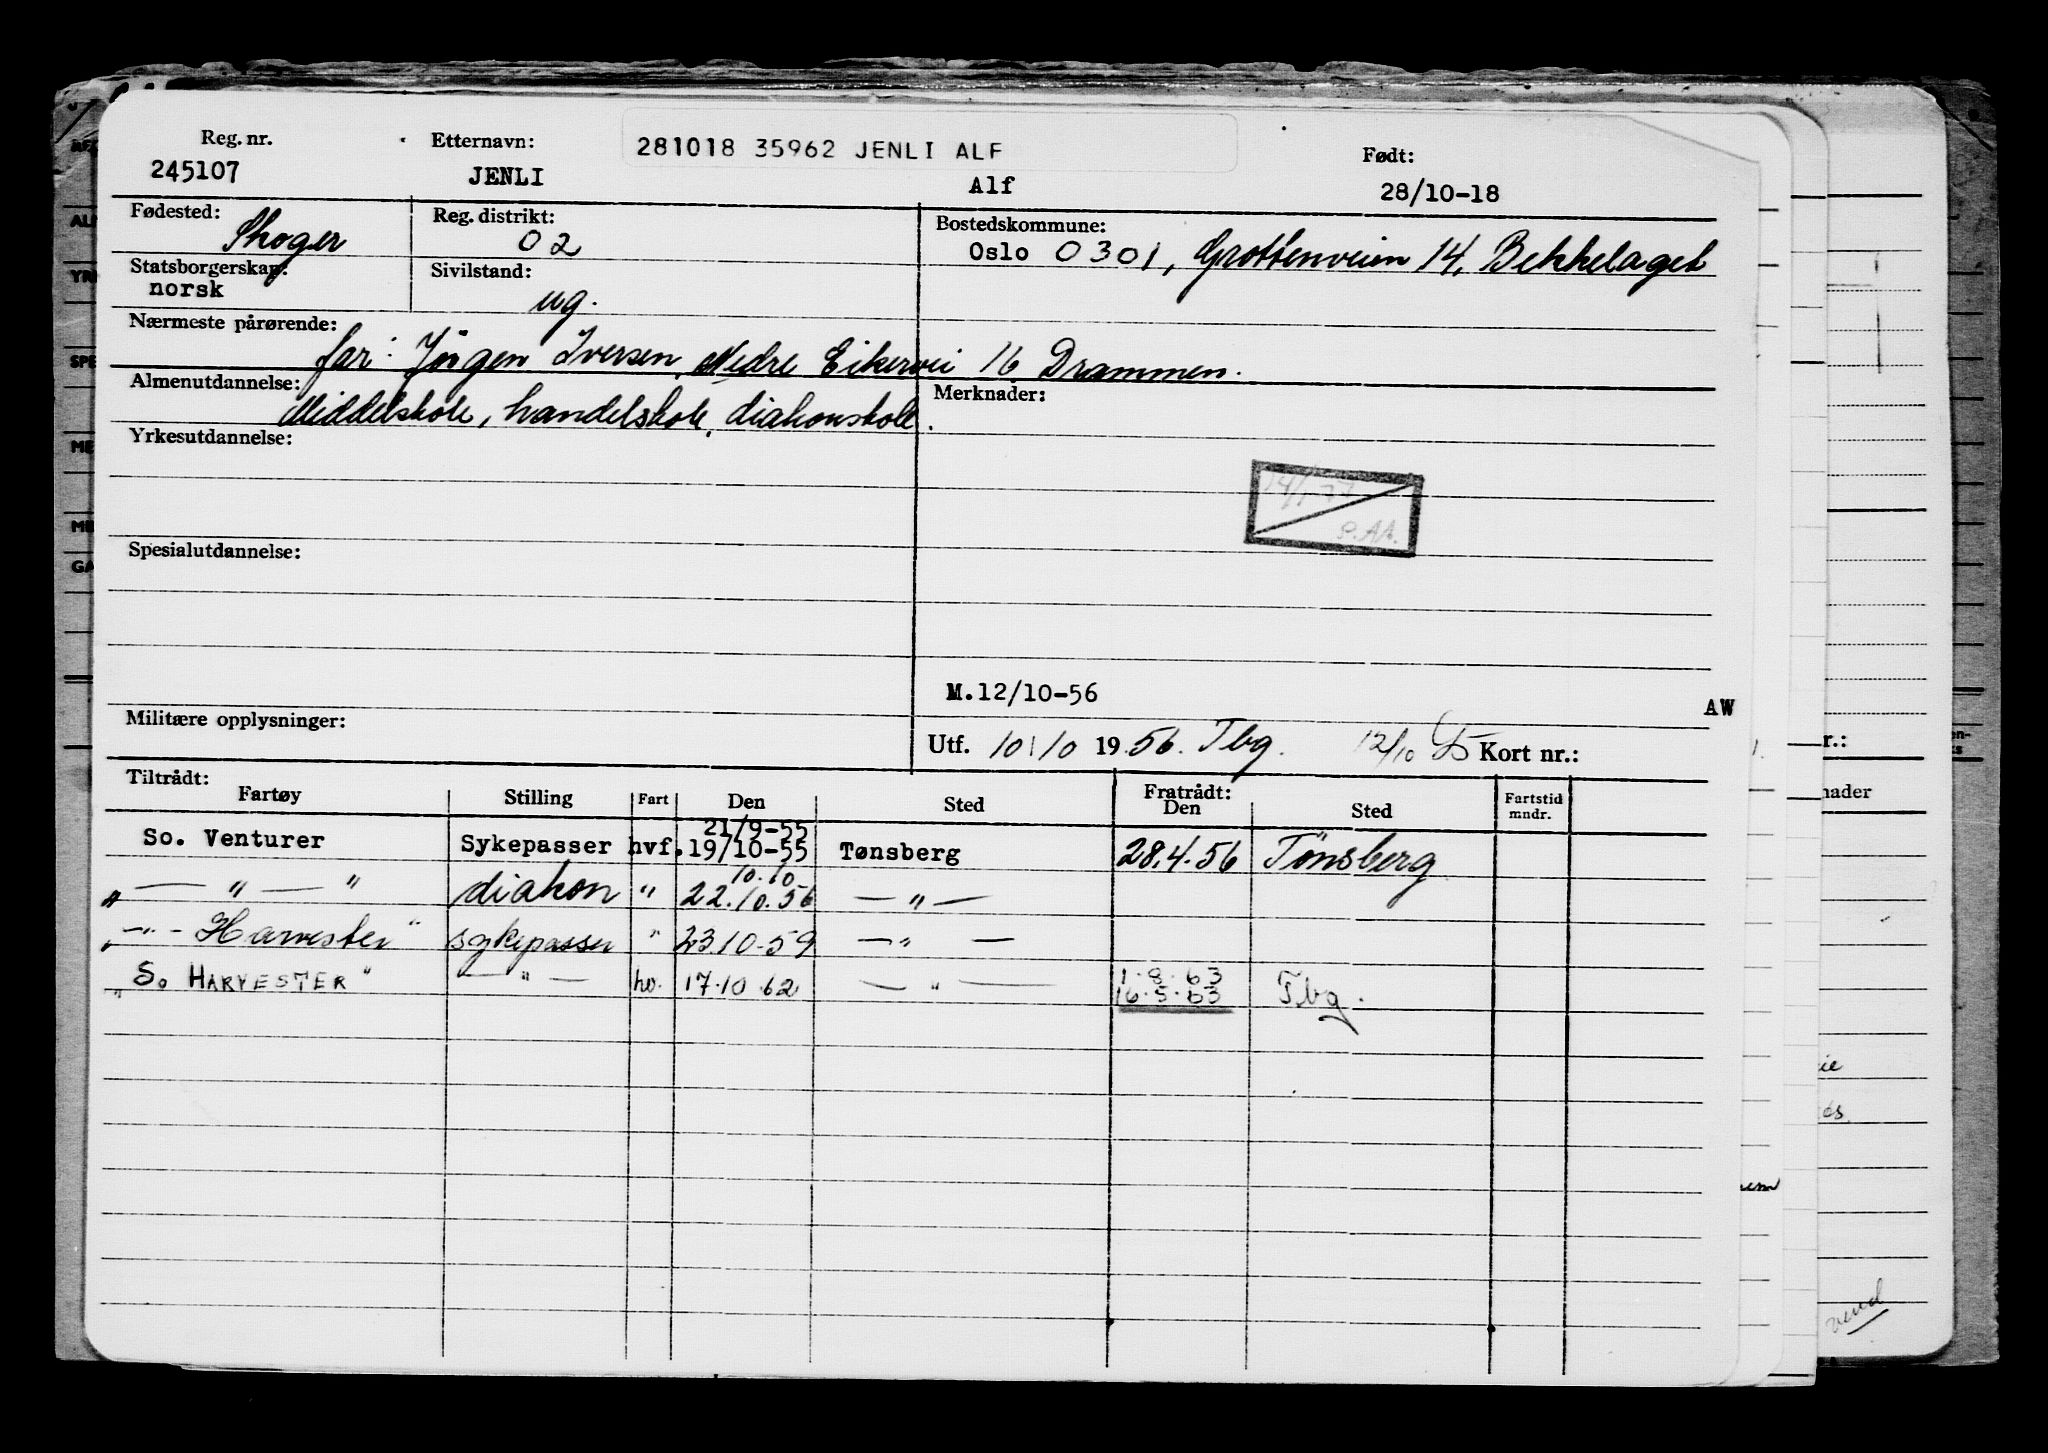 Reg. nr. Etternavn: 281018 35962 JENLI ALF Født:
245107 JENLI Alf 28/10-18
Fødested: Skoger Reg. distrikt: 02 Bostedskommune:
Oslo 0301, Grottenveien 14, Bekkelaget
Statsborgerskap: norsk Sivilstand: ug.
Nærmeste pårørende:
far: Jörgen Iversen, Nedre Eikervei 16 Drammen.
Almenutdannelse: Merknader:
Middelskole, handelskole, diakonskole.
Yrkesutdannelse:
14/1 77
P.AA.
Spesialutdannelse:
M.12/10-56
AW
Militære opplysninger:
Utf. 10/10 1956. Tbg. 12/10 Kort nr.:
Tiltrådt: Fratrådt:
Fartøy Stilling Fart Den Sted Den Sted Fartstid mndr.
21/9-55
So. Venturer Sykepasser hvf. 19/10-55 Tønsberg 28.4.56 Tönsberg
10.10
„ — " — " diakon " 22.10.56 — " —
„ - " - Harvester" sykepasser " 23.10-59 — " —
1.8.63
„So HARVESTER" — " — hv. 17.10 62 — " — 16.5.63 Tbg.
r.:
nader
ie
ds.
em
vend